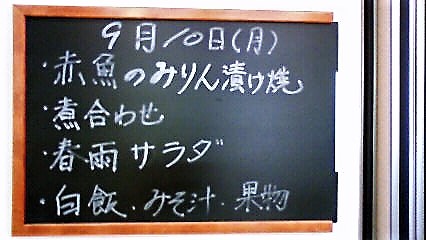 9月10日(月)
・赤魚のみりん漬け焼
・煮合わせ
・春雨サラダ
・白飯・みそ汁・果物